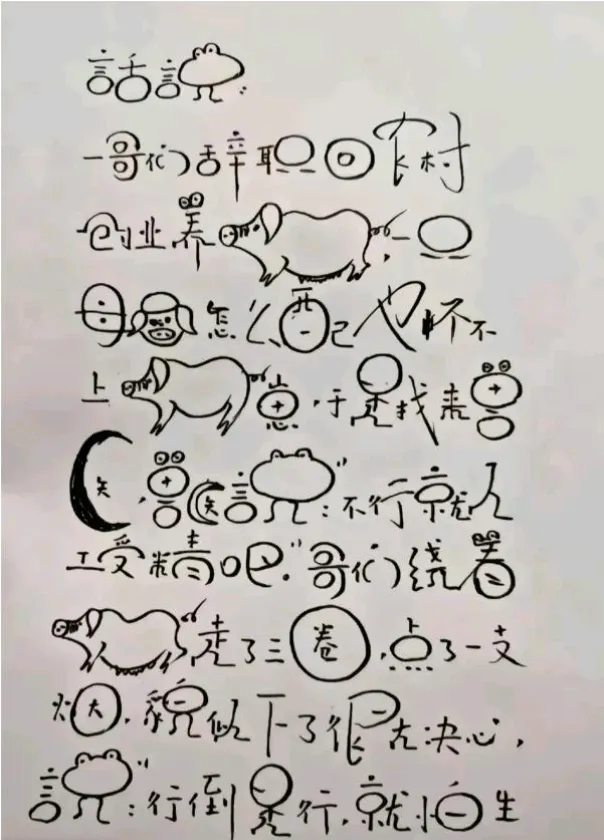 話說:
一哥们辞职回农村
创业养猪,一只
母猪怎么配也怀不
上猪崽,于是找来兽
医,兽医說:"不行就人
工受精吧."哥们绕着
猪走了三圈,点了一支
烟,貌似下了很大决心,
說:"行倒是行,就怕生